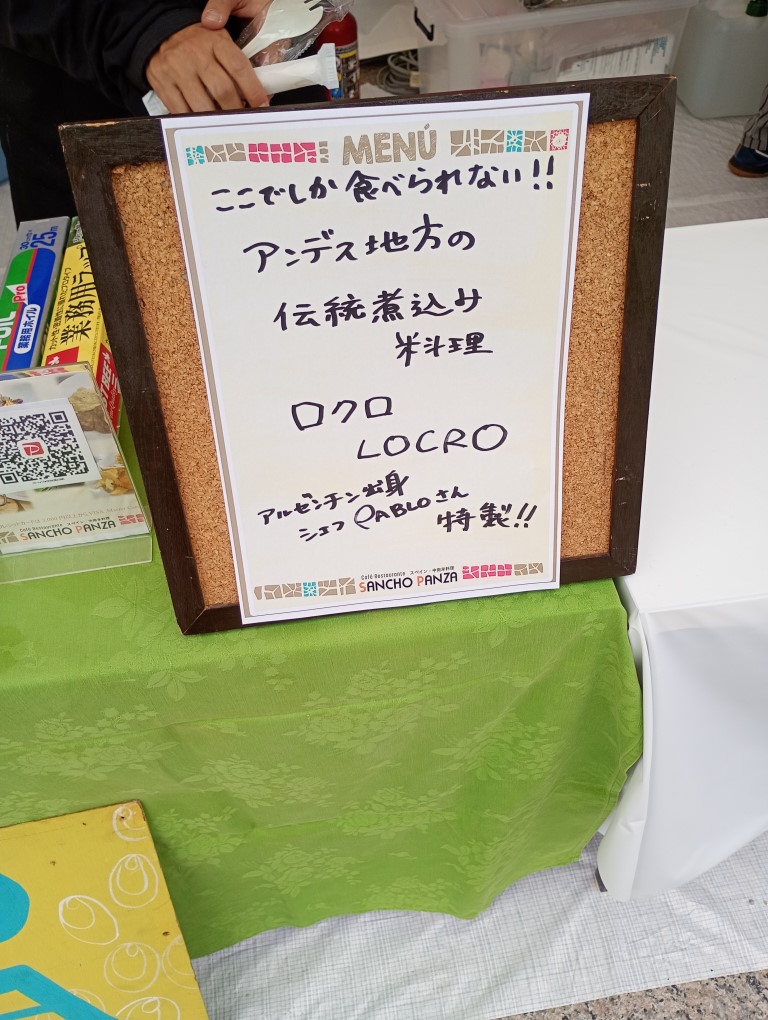 MENÚ
ここでしか食べられない!!
アンデス地方の
伝統煮込み
料理
ロクロ
LOCRO
アルゼンチン出身
シェフPABLOさん
特製!!
Café Restaurante スペイン・中南米料理
SANCHO PANZA
25m
FOIL Pro
業務用ホイル
業務用ラップ
Café Restaurante
SANCHO PANZA